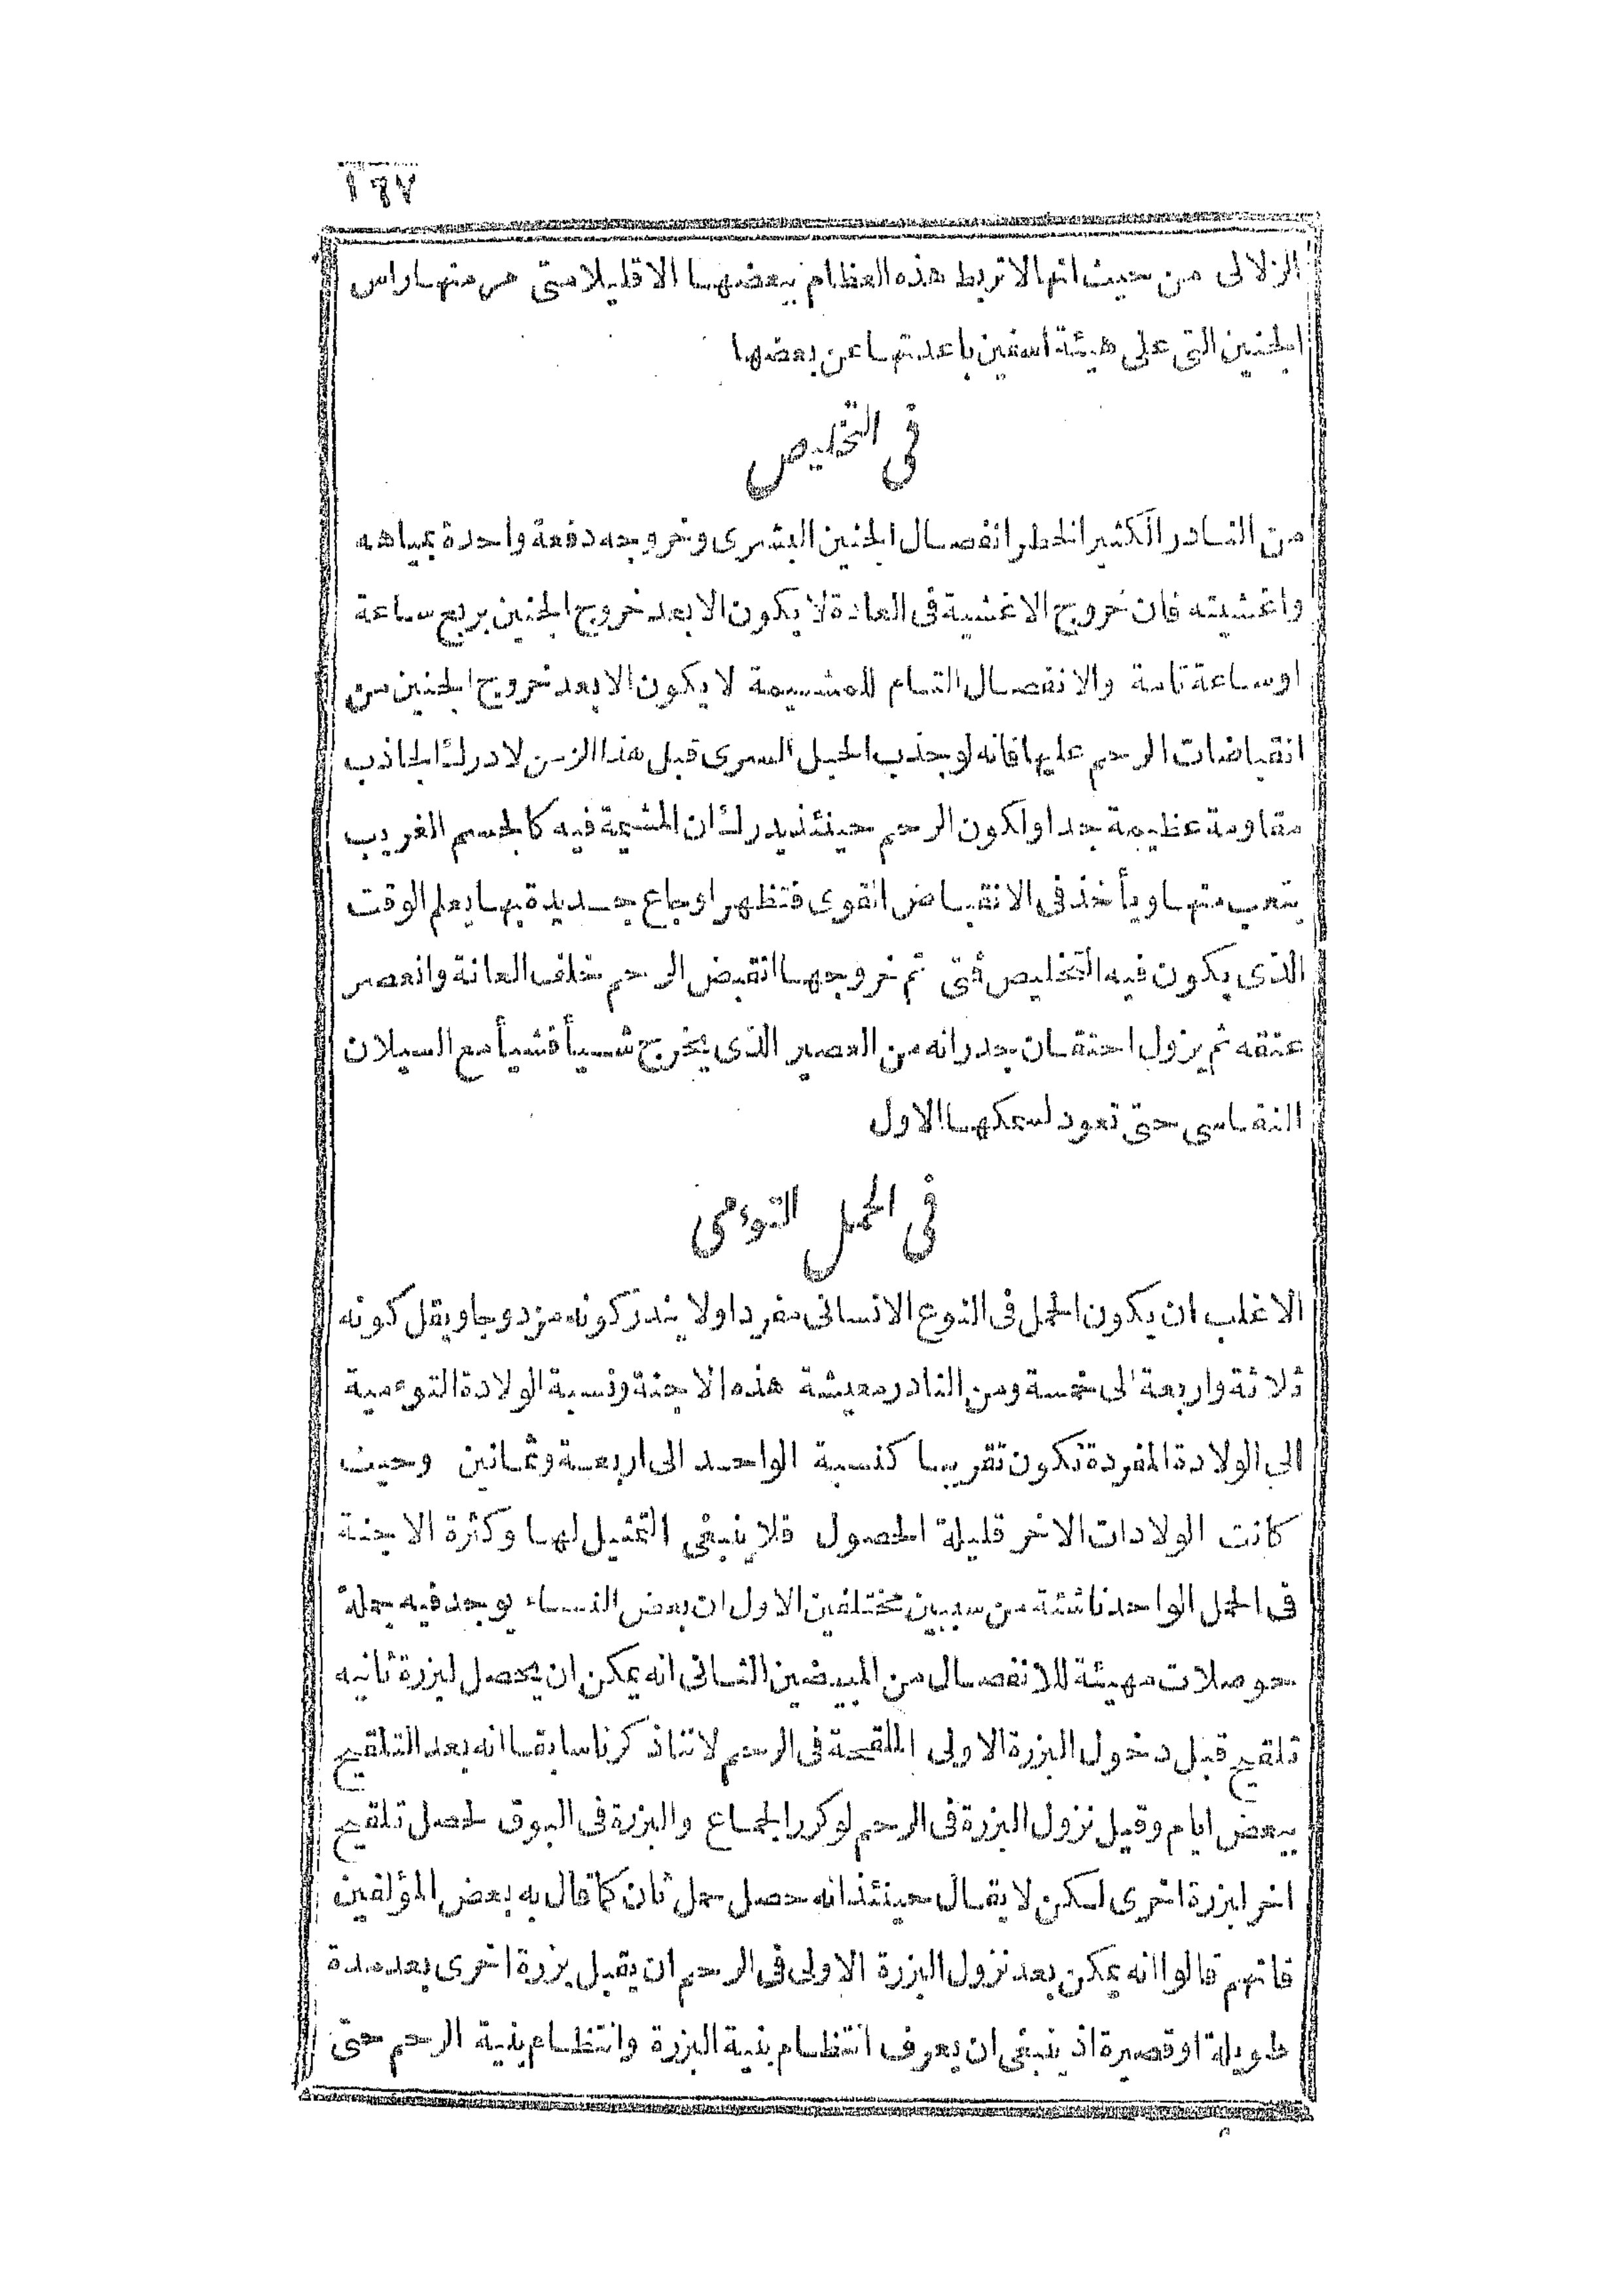 ١٩٧
الزلالى من حيث انها لا تربط هذه العظام ببعضها الا قليلا متى مر منها راس
الجنين التى على هيئة اسفين باعدتها عن بعضها
فى التخليص
من النادر الكثير الخطر انفصال الجنين البشرى وخروجه دفعة واحدة بمياهه
واغشيته فان خروج الاغشية فى العادة لا يكون الا بعد خروج الجنين بربع ساعة
او ساعة تامة والانفصال التام للمشيمة لا يكون الا بعد خروج الجنين من
انقباضات الرحم عليها فانه لو جذب الحبل السرى قبل هذا الزمن لادرك الجاذب
مقاومة عظيمة جدا ولكون الرحم حينئذ يدرك ان المشيمة فيه كالجسم الغريب
يتعب منها ويأخذ فى الانقباض القوى فتظهر اوجاع جديدة بها يعلم الوقت
الذى يكون فيه التخليص فمتى تم خروجها انقبض الرحم خلف العانة وانعصر
عنقه ثم يزول احتقان جدرانه من العصير الذى يخرج شيأ فشيأ مع السيلان
النفاسى حتى تعود لسمكها الاول
فى الحمل التوءمى
الاغلب ان يكون الحمل فى النوع الانسانى مفردا ولا يندر كونه مزدوجا ويقل كونه
ثلاثة واربعة الى خمسة ومن النادر معيشة هذه الاجنة ونسبة الولادة التوءمية
الى الولادة المفردة تكون تقريبا كنسبة الواحد الى اربعة وثمانين وحيث
كانت الولادات الاخر قليلة الحصول فلا ينبغى التمثيل لها وكثرة الاجنة
فى الحمل الواحد ناشئة من سببين مختلفين الاول ان بعض النساء يوجد فيه جملة
حوصلات مهيئة للانفصال من المبيضين الثانى انه يمكن ان يحصل لبزرة ثانيه
تلقيح قبل دخول البزرة الاولى الملقحة فى الرحم لاننا ذكرنا سابقا انه بعد التلقيح
ببعض ايام وقبل نزول البزرة فى الرحم لو كرر الجماع والبزرة فى البوق لحصل تلقيح
اخر لبزرة اخرى لكن لا يقال حينئذ انه حصل حمل ثان كما قال به بعض المؤلفين
فانهم قالوا انه يمكن بعد نزول البزرة الاولى فى الرحم ان يقبل بزرة اخرى بعد مدة
طويلة او قصيرة اذ ينبغى ان يعرف انتظام بنية البزرة وانتظام بنية الرحم حتى